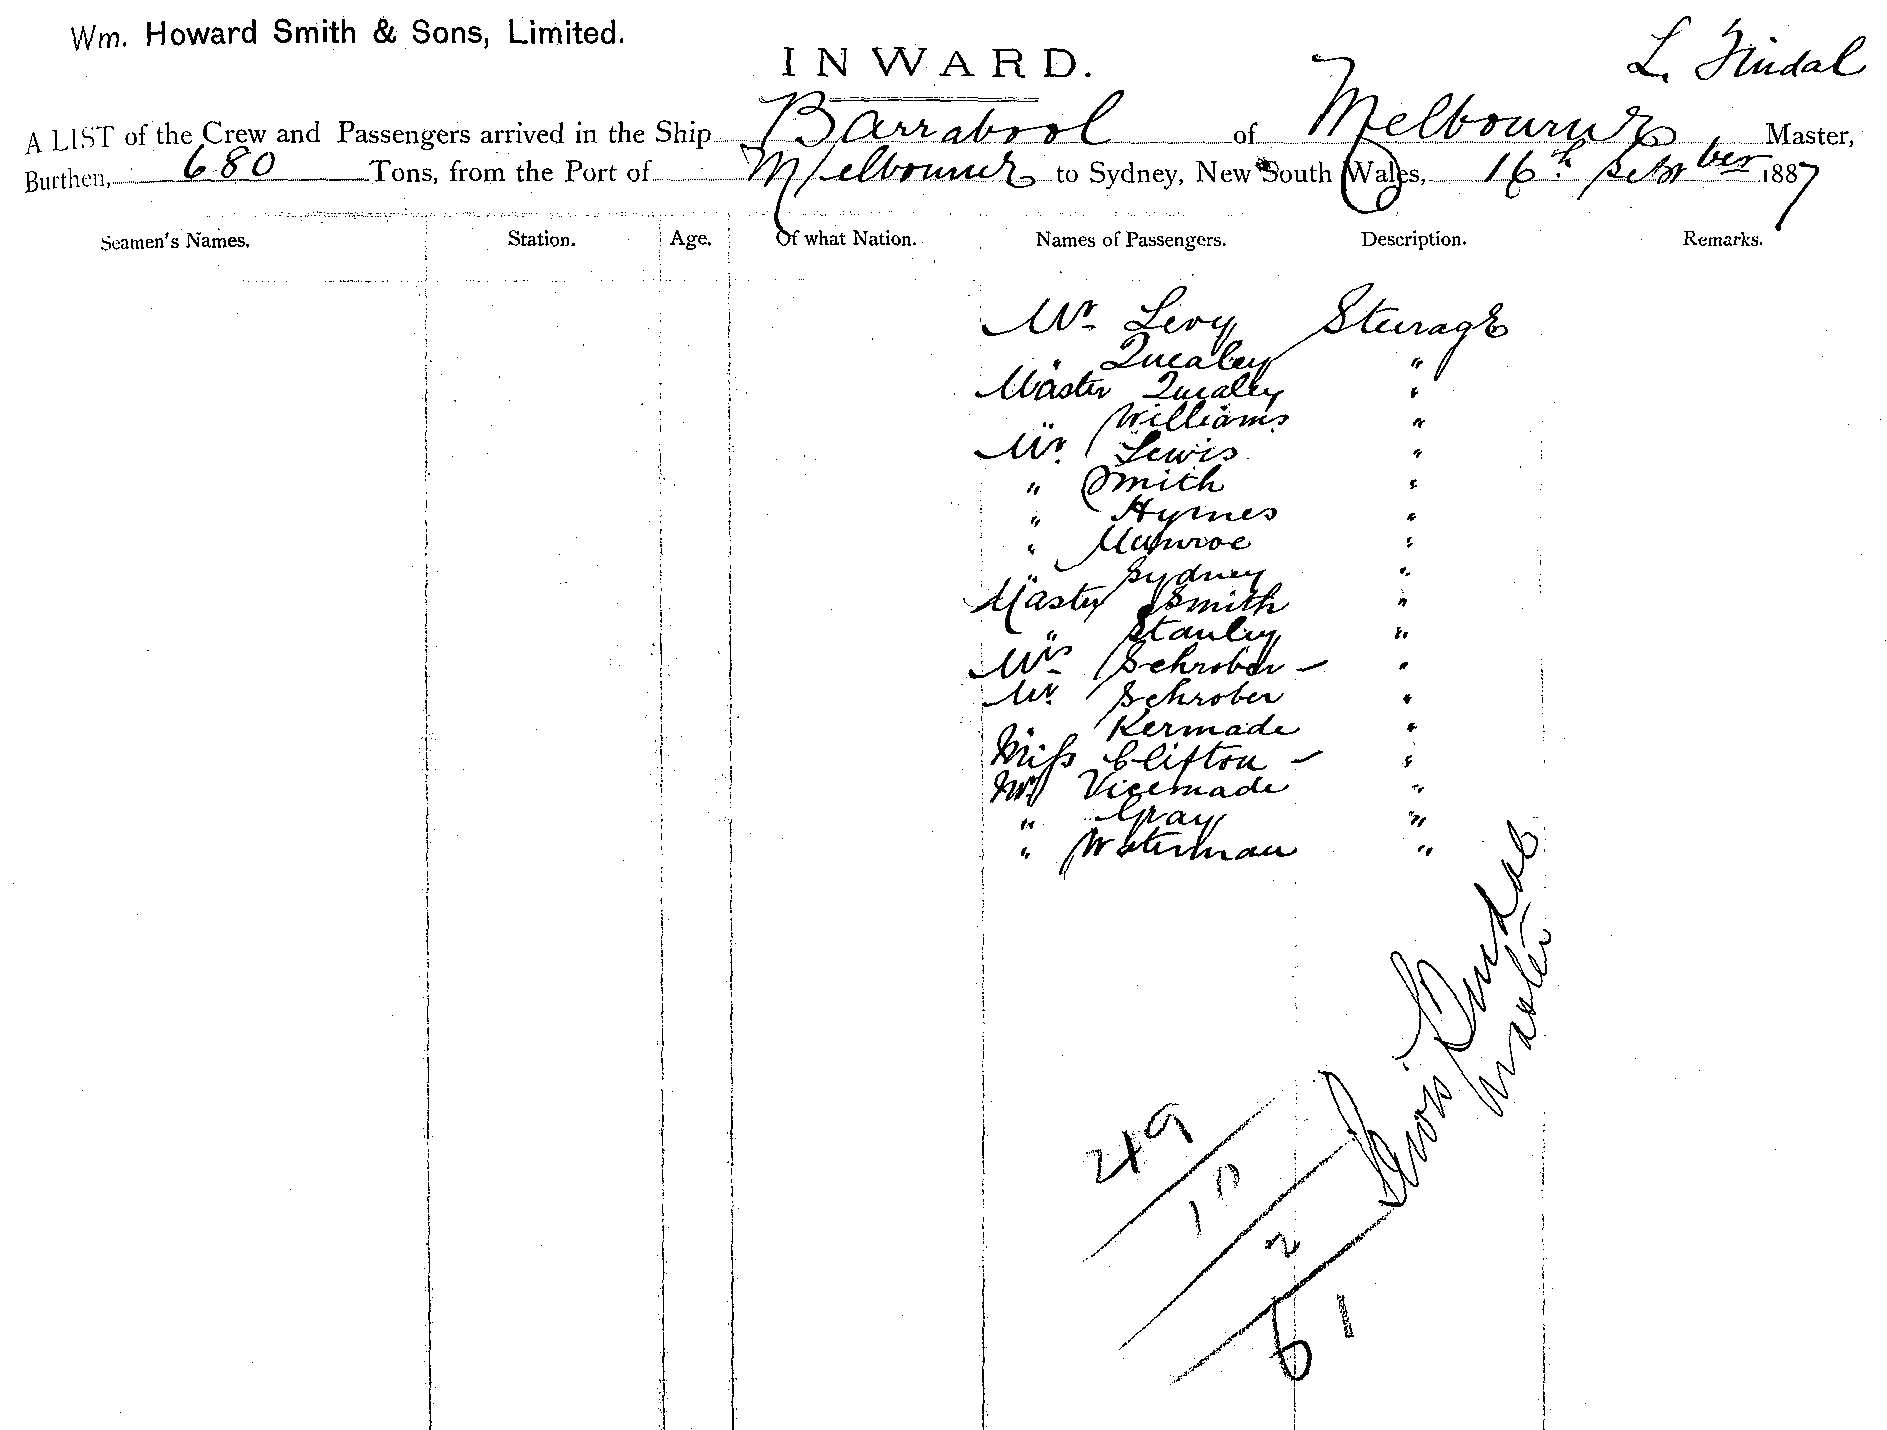 Wm. Howard Smith & Sons, Limited.
INWARD.
L. Findal
A LIST of the Crew and Passengers arrived in the Ship Barrabool of Melbourne Master,
Burthen, 680 Tons, from the Port of Melbourne to Sydney, New South Wales, 16th Septmber 1887
Seamen's Names. Station. Age. Of what Nation. Names of Passengers. Description. Remarks.
Mr. Levy Steerage
" Quealey "
Master Quealey "
" Williams "
Mr. Lewis "
" Smith "
" Hymes "
" Munroe "
" Sydney "
Master Smith "
" Stanley "
Mrs Schrober – "
Mr. Schrober "
" Kermade "
Miss Clifton – "
Mr Vicemade "
" Gray "
" Waterman "
Lewis Findal
Master
49
10
2
61